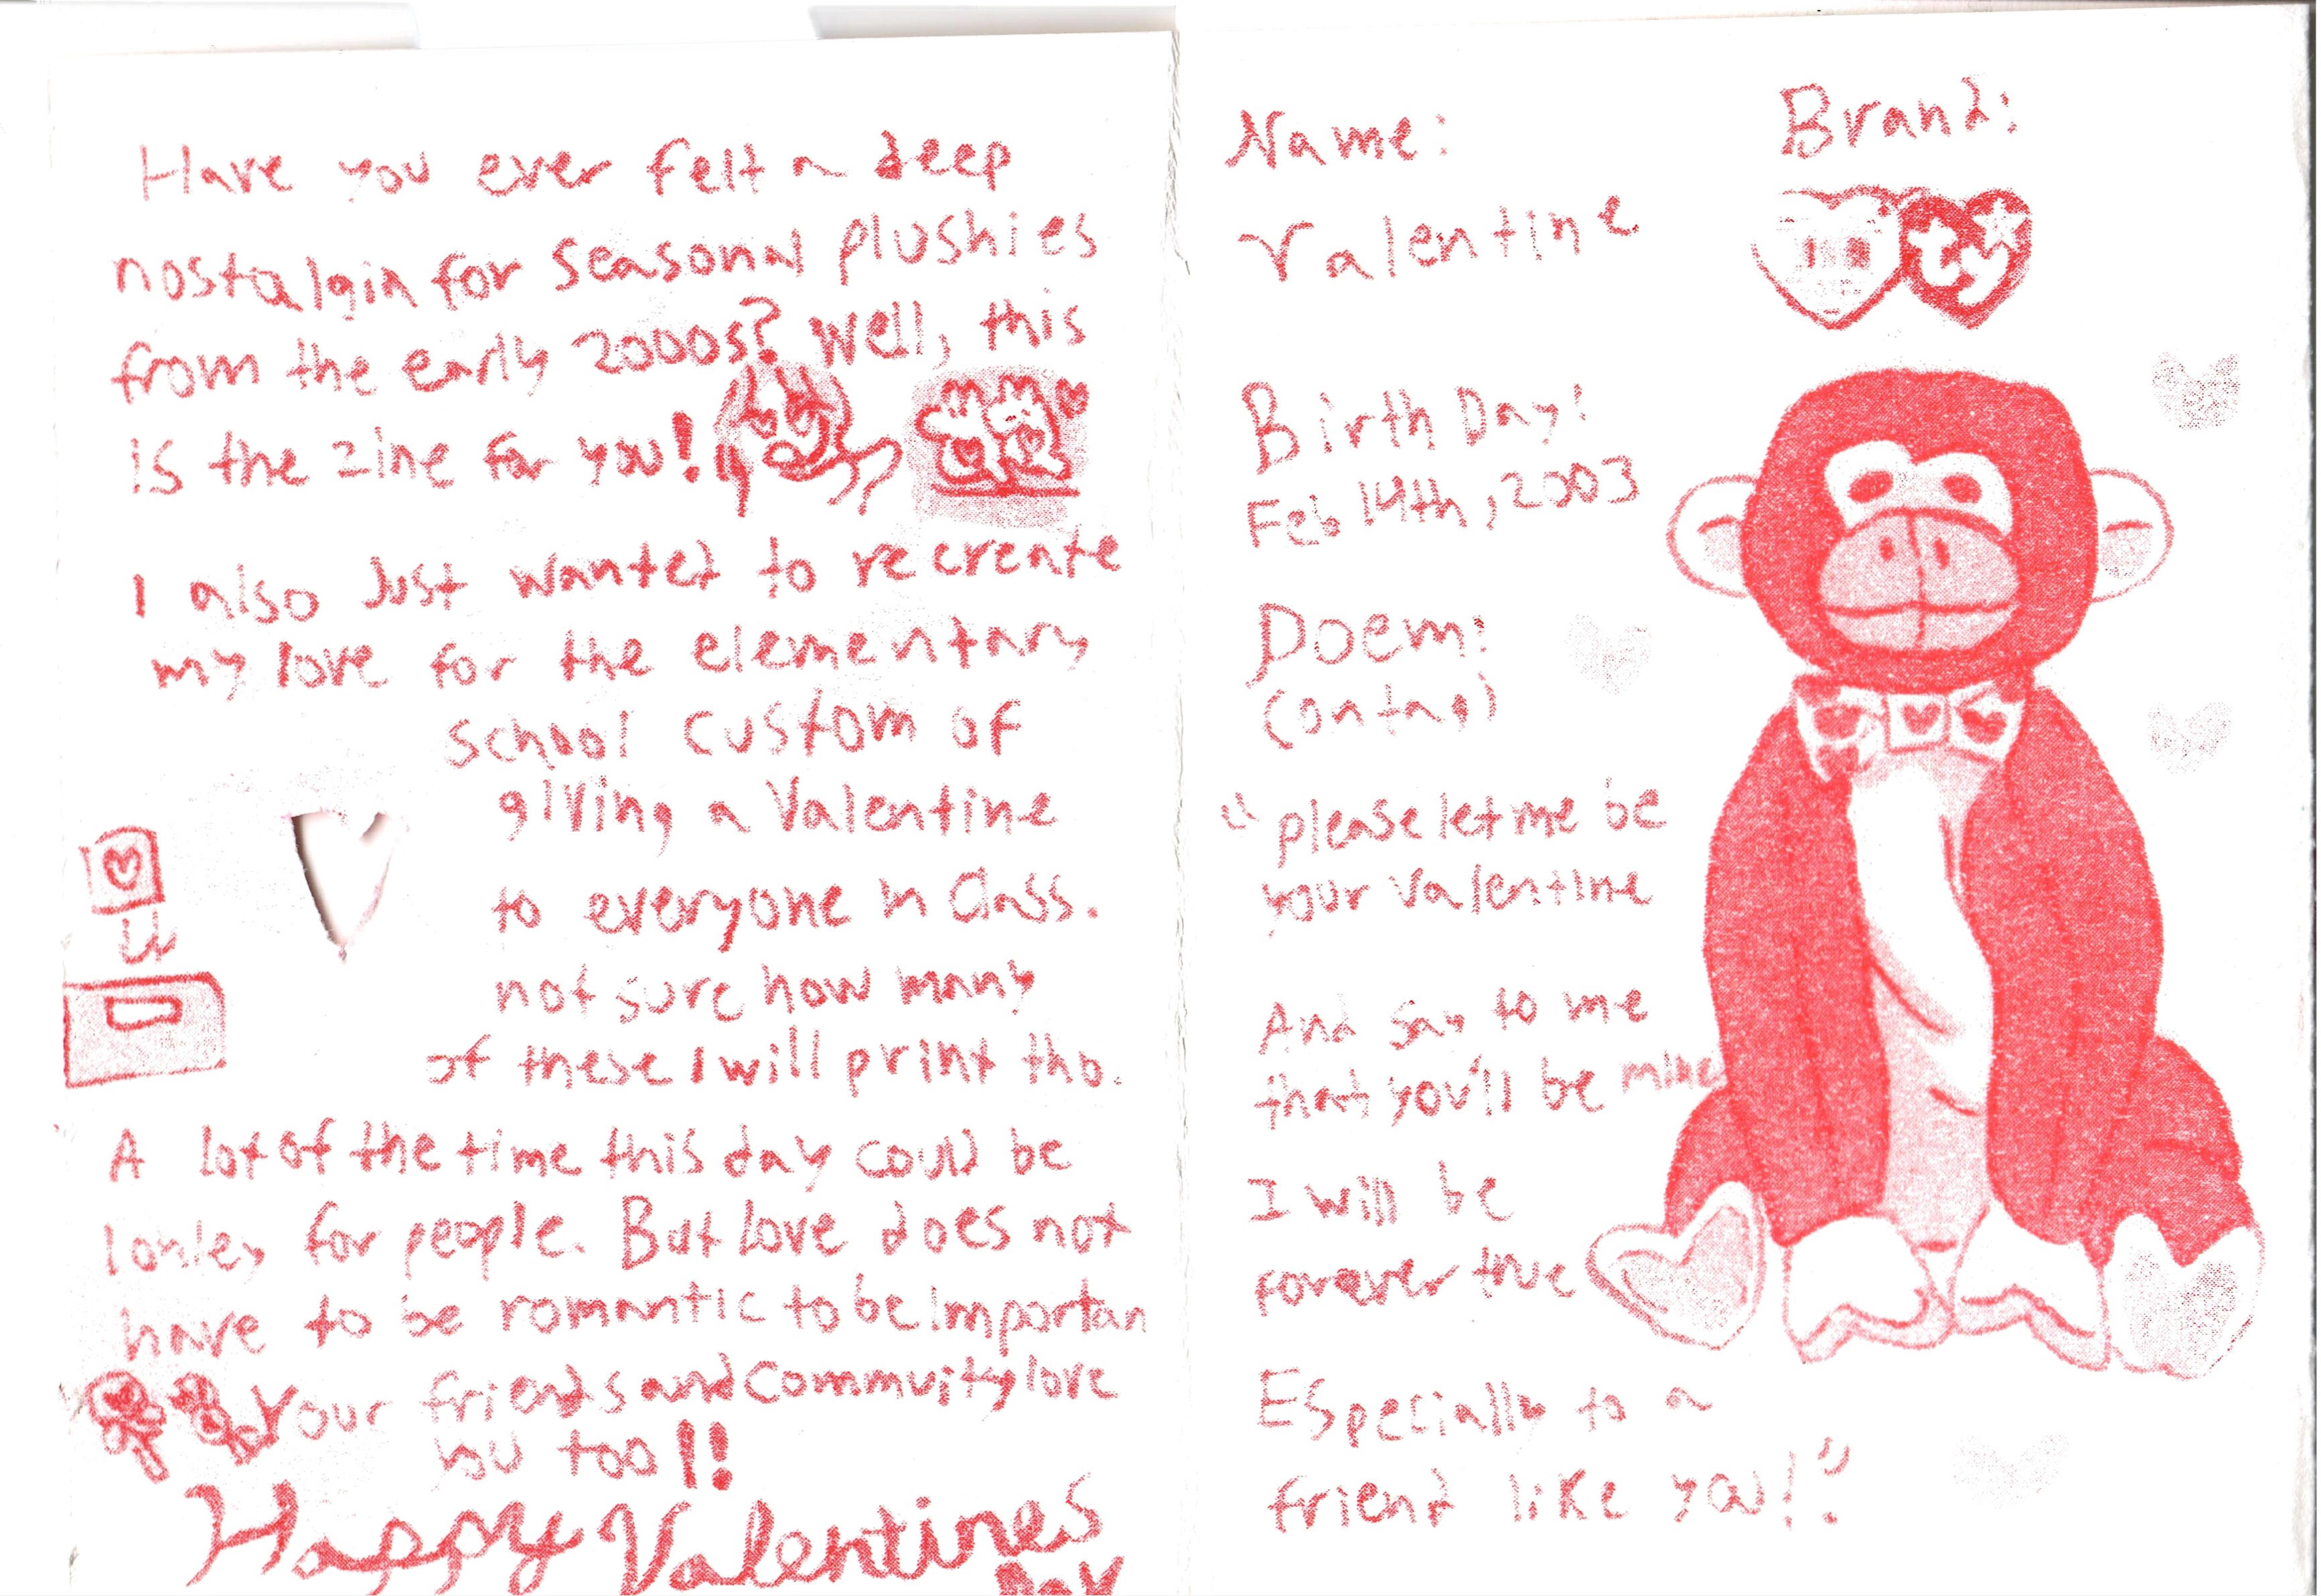 Have you ever felt a deep
nostalgia for seasonal plushies
from the early 2000s? Well, this
is the zine for you!
I also Just wanted to recreate
my love for the elementary
school custom of
giving a Valentine
to everyone in Class.
not sure how many
of these I will print tho.
A lot of the time this day could be
lonley for people. But Love does not
have to be romantic to be Importan
Your friends and Commuity love
you too!!
Happy Valentines
Day
Name:
Valentine
Brand:
ty
Birth Day:
Feb 14th, 2003
Poem:
(on tag)
"please let me be
your Valentine
And Say to me
that you'll be mine
I will be
forever true
Especially to a
friend like you!"